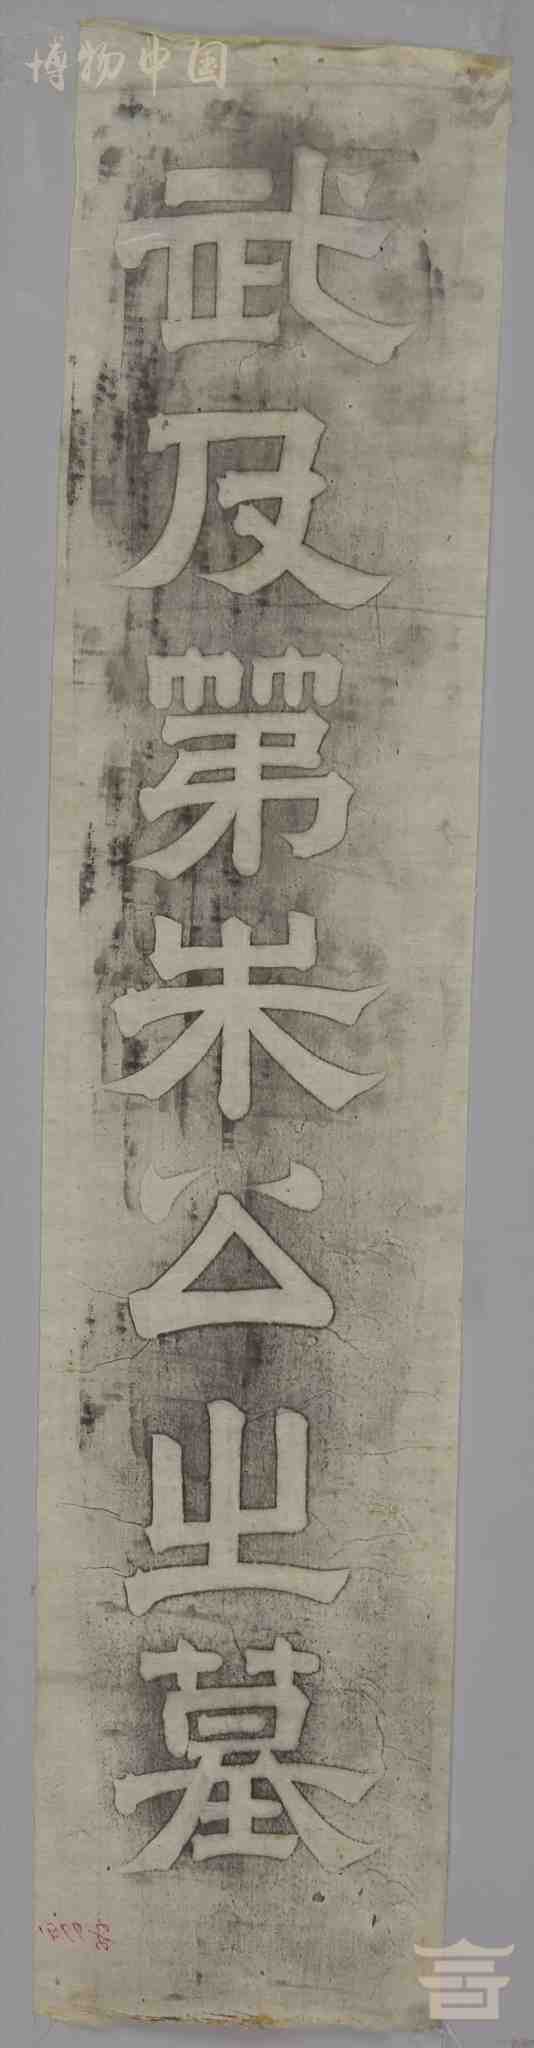 博物中国
武及第朱公之墓